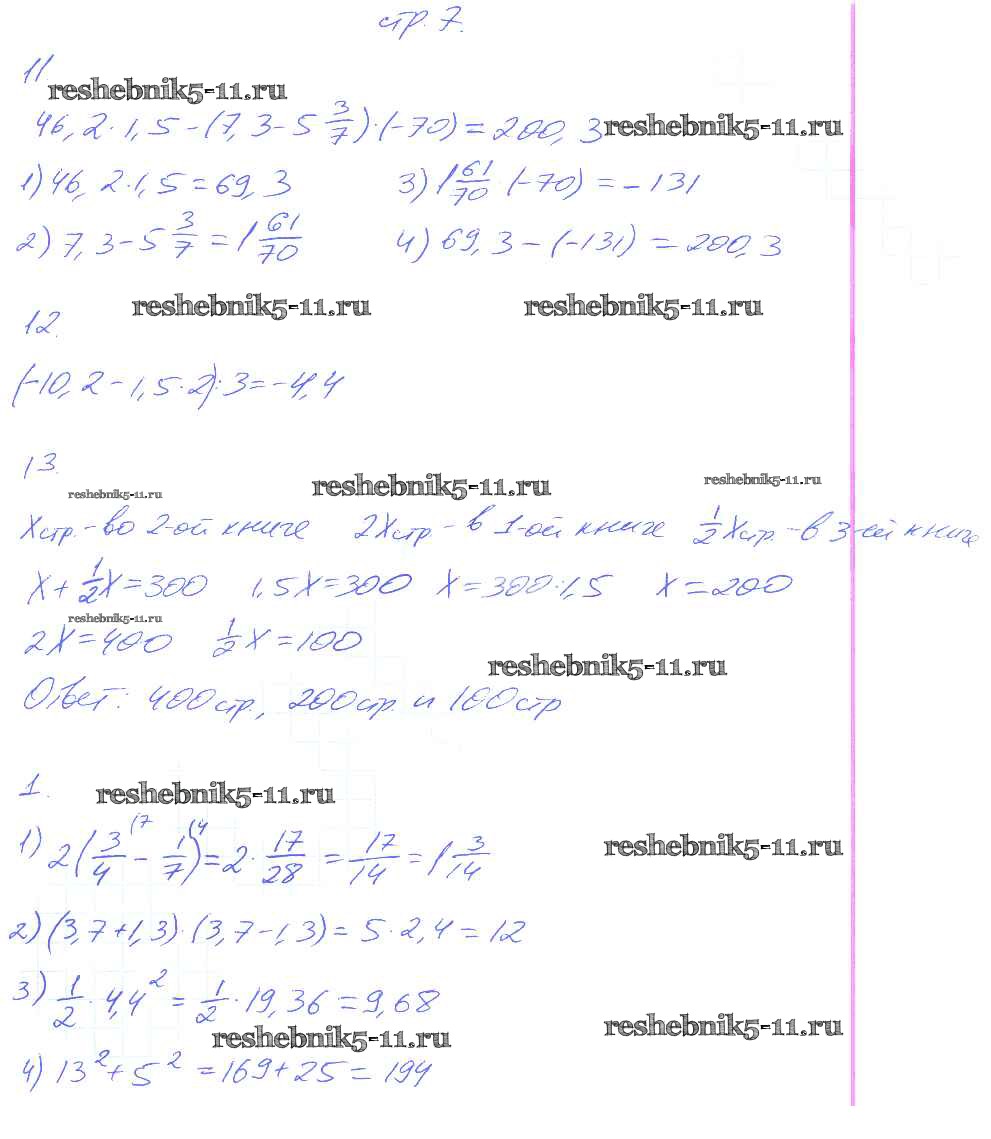 стр. 7.
11
reshebnik5-11.ru
46,2·1,5-(7,3-5 3/7)·(-70)=200,3
reshebnik5-11.ru
1) 46,2·1,5=69,3
3) 1 61/70·(-70)=-131
2) 7,3-5 3/7=1 61/70
4) 69,3-(-131)=200,3
reshebnik5-11.ru reshebnik5-11.ru
12.
(-10,2-1,5·2):3=-4,4
13.
reshebnik5-11.ru reshebnik5-11.ru reshebnik5-11.ru
Xстр.-во 2-ой книге 2Xстр.-в 1-ой книге 1/2Xстр.-в 3-ей книге
X+1/2X=300 1,5X=300 X=300:1,5 X=200
reshebnik5-11.ru
2X=400 1/2X=100
reshebnik5-11.ru
Ответ: 400стр., 200стр. и 100стр
1.
reshebnik5-11.ru
1) 2(3/4(7 - 1/7)(4=2·17/28=17/14=1 3/14
reshebnik5-11.ru
2) (3,7+1,3)·(3,7-1,3)=5·2,4=12
3) 1/2·4,4²=1/2·19,36=9,68
reshebnik5-11.ru reshebnik5-11.ru
4) 13²+5²=169+25=194